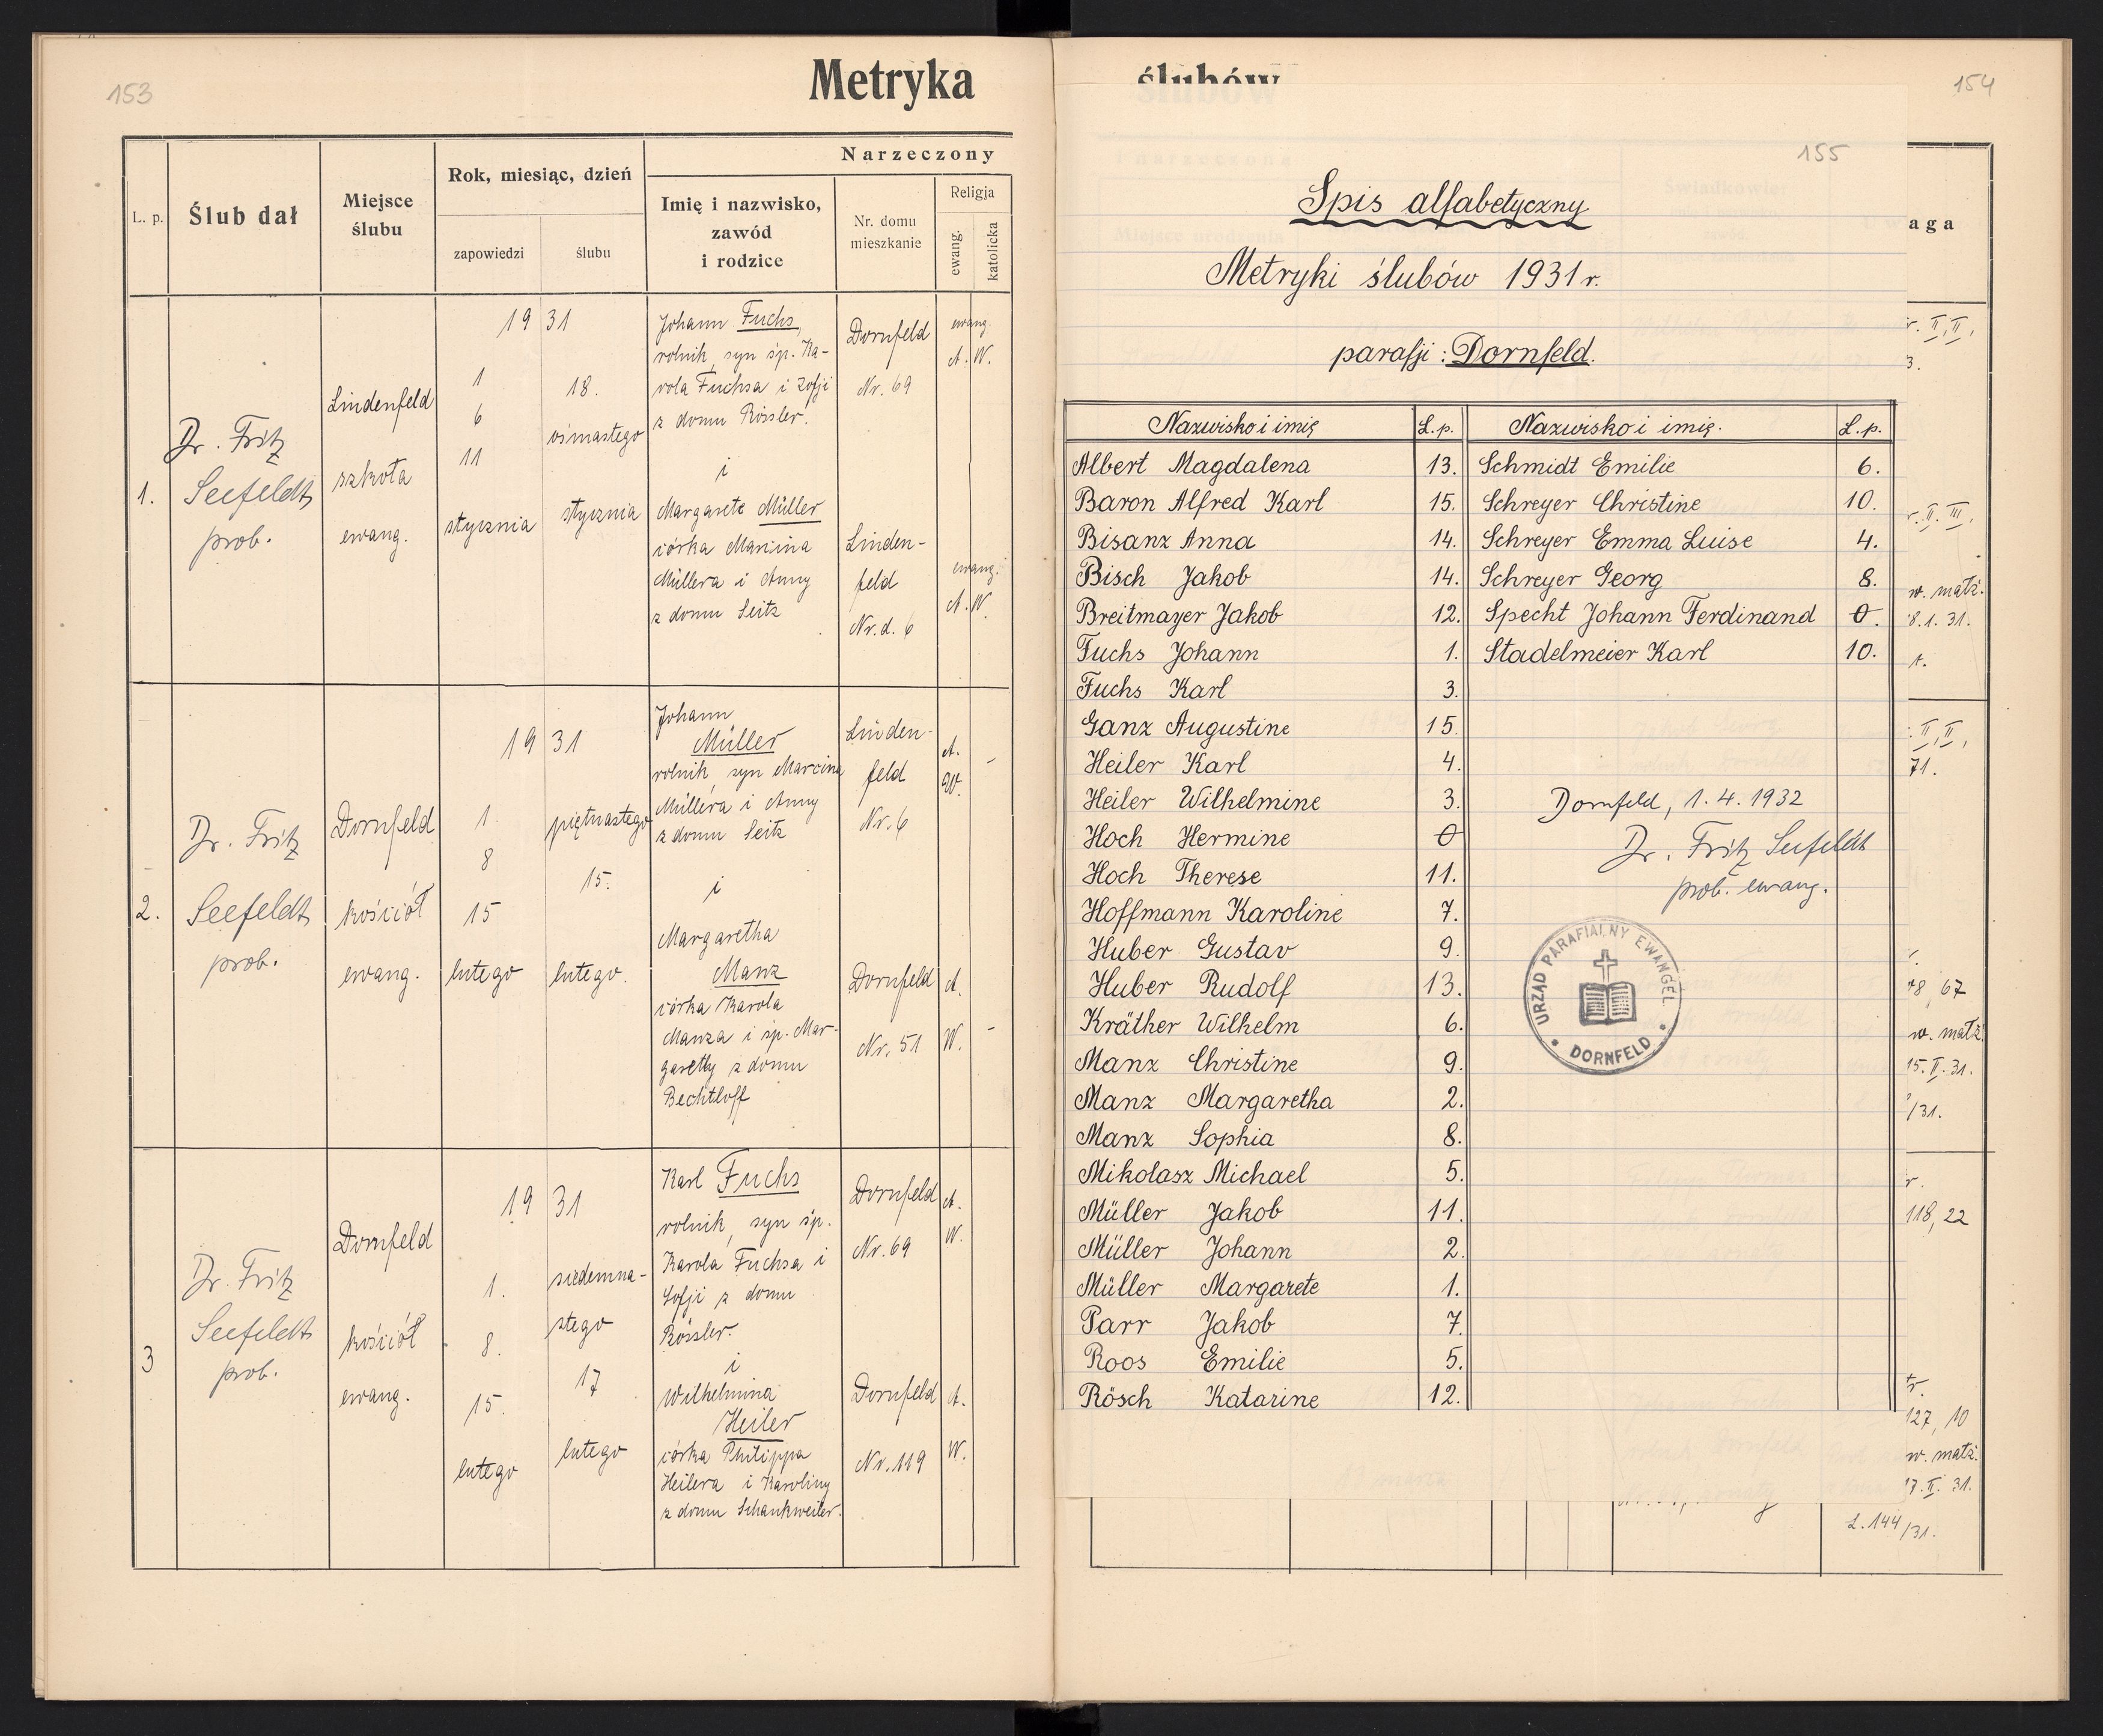 153
Metryka
L. p.
Ślub dał
Miejsce
ślubu
Rok, miesiąc, dzień
zapowiedzi
ślubu
Narzeczony
Imię i nazwisko,
zawód
i rodzice
Nr. domu
mieszkanie
Religja
ewang.
katolicka
1.
Dr. Fritz
Seefeldt
prob.
Lindenfeld
szkoła
ewang.
19 31
1
6
11
stycznia
18.
ośmastego
stycznia
Johann Fuchs,
rolnik, syn śp. Ka-
rola Fuchsa i Zofji
z domu Rössler.
i
Margarete Müller
córka Marcina
Müllera i Anny
z domu Seitz
Dornfeld
Nr. 69
Linden-
feld
Nr. d. 6
ewang.
A. W.
ewang.
A. W.
2.
Dr. Fritz
Seefeldt
prob.
Dornfeld
kościół
ewang.
19 31
1.
8
15
lutego
piętnastego
15.
lutego.
Johann
Müller
rolnik, syn Marcina
Müllera i Anny
z domu Seitz
i
Margaretha
Manz
córka Karola
Manza i śp. Mar-
garethy z domu
Bechtloff
Linden-
feld
Nr. 6
Dornfeld
Nr. 51
A.
W.
-
A.
W.
-
3
Dr. Fritz
Seefeldt
prob.
Dornfeld
kościół
ewang.
19 31
1.
8.
15.
lutego
siedemna-
stego
17
lutego
Karl Fuchs
rolnik, syn śp.
Karola Fuchsa i
Sofji z domu
Rössler.
i
Wilhelmina
Heiler
córka Philippa
Heilera i Karoliny
z domu Schankweiler.
Dornfeld
Nr. 69
Dornfeld
Nr. 119
A.
W.
A.
W.
ślubów
154
155
Spis alfabetyczny
Metryki ślubów 1931 r.
parafji: Dornfeld.
Nazwisko i imię L.p. Nazwisko i imię. L.p.
Albert Magdalena 13. Schmidt Emilie 6.
Baron Alfred Karl 15. Schreyer Christine 10.
Bisanz Anna 14. Schreyer Emma Luise 4.
Bisch Jakob 14. Schreyer Georg 8.
Breitmayer Jakob 12. Specht Johann Ferdinand 0.
Fuchs Johann 1. Stadelmeier Karl 10.
Fuchs Karl 3.
Ganz Augustine 15.
Heiler Karl 4.
Heiler Wilhelmine 3.
Hoch Hermine 0
Hoch Therese 11.
Hoffmann Karoline 7.
Huber Gustav 9.
Huber Rudolf 13.
Kräther Wilhelm 6.
Manz Christine 9.
Manz Margaretha 2.
Manz Sophia 8.
Mikolasz Michael 5.
Müller Jakob 11.
Müller Johann 2.
Müller Margarete 1.
Parr Jakob 7.
Roos Emilie 5.
Rösch Katarine 12.
Dornfeld, 1. 4. 1932
Dr. Fritz Seefeldt
prob. ewang.
URZĄD PARAFIALNY EWANGEL.
DORNFELD
aga
r. II, II,
3.
r. II. III,
w. małż.
8. 1. 31.
II, II,
71.
48, 67
w. małż.
15. II. 31.
/31.
r.
118, 22
127, 10
w. małż.
17. II. 31.
L. 144/31.